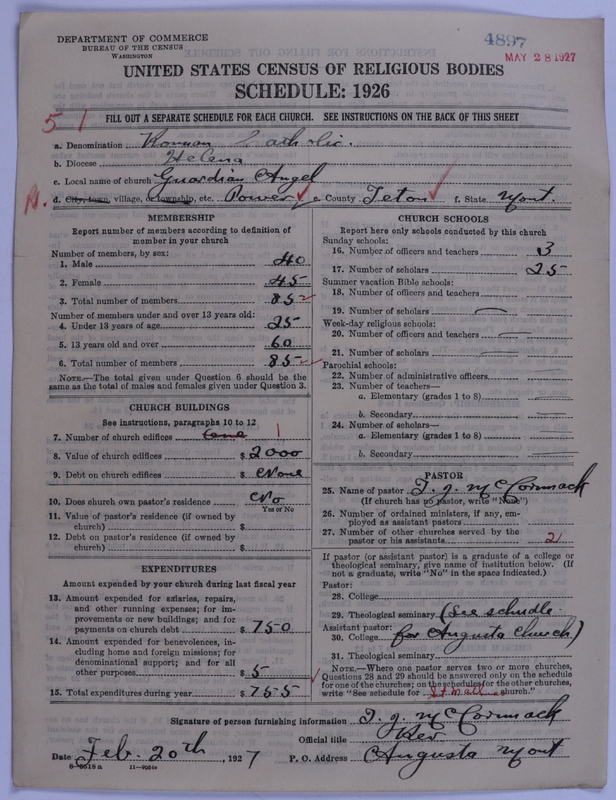 DEPARTMENT OF COMMERCE
BUREAU OF THE CENSUS
WASHINGTON
4897
MAY 28 1927
UNITED STATES CENSUS OF RELIGIOUS BODIES
SCHEDULE: 1926
5 1
FILL OUT A SEPARATE SCHEDULE FOR EACH CHURCH. SEE INSTRUCTIONS ON THE BACK OF THIS SHEET
a. Denomination Roman Catholic.
b. Diocese Helena
c. Local name of church Guardian Angel
R. d. City, town, village, or township, etc. Power e. County Teton f. State Mont.
MEMBERSHIP
Report number of members according to definition of
member in your church
Number of members, by sex:
1. Male 40
2. Female 45
3. Total number of members 85
Number of members under and over 13 years old:
4. Under 13 years of age 25
5. 13 years old and over 60
6. Total number of members 85
NOTE.—The total given under Question 6 should be the
same as the total of males and females given under Question 3.
CHURCH BUILDINGS
See instructions, paragraphs 10 to 12
7. Number of church edifices One 1
8. Value of church edifices $ 2000
9. Debt on church edifices $ None
10. Does church own pastor's residence No
Yes or No
11. Value of pastor's residence (if owned by
church) $
12. Debt on pastor's residence (if owned by
church) $
EXPENDITURES
Amount expended by your church during last fiscal year
13. Amount expended for salaries, repairs,
and other running expenses; for im-
provements or new buildings; and for
payments on church debt $ 750
14. Amount expended for benevolences, in-
cluding home and foreign missions; for
denominational support; and for all
other purposes $ 5
15. Total expenditures during year $ 755
CHURCH SCHOOLS
Report here only schools conducted by this church
Sunday schools:
16. Number of officers and teachers 3
17. Number of scholars 25
Summer vacation Bible schools:
18. Number of officers and teachers
19. Number of scholars
Week-day religious schools:
20. Number of officers and teachers
21. Number of scholars
Parochial schools:
22. Number of administrative officers
23. Number of teachers—
a. Elementary (grades 1 to 8)
b. Secondary
24. Number of scholars—
a. Elementary (grades 1 to 8)
b. Secondary
PASTOR
25. Name of pastor T. J. McCormack
(If church has no pastor, write "None")
26. Number of ordained ministers, if any, em-
ployed as assistant pastors
27. Number of other churches served by the
pastor or his assistants 2
If pastor (or assistant pastor) is a graduate of a college or
theological seminary, give name of institution below. (If
not a graduate, write "No" in the space indicated.)
Pastor:
28. College
29. Theological seminary (See schudle
Assistant pastor:
30. College for Augusta Church)
31. Theological seminary
NOTE.—Where one pastor serves two or more churches,
Questions 28 and 29 should be answered only on the schedule
for one of the churches; on the schedules for the other churches,
write "See schedule for church."
Signature of person furnishing information T. J. McCormack
Official title Rev
Date Feb. 20th, 1927
P. O. Address Augusta Mont
8—5518 a 11—9024a